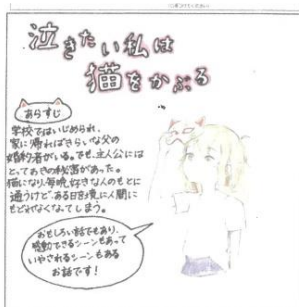 泣きたい私は
猫をかぶる
あらすじ
学校ではいじめられ、
家に帰ればきらいな父の
婚約者がいる。でも、主人公には
とっておきの秘密があった。
猫になり、毎晩、好きな人のもとに
通うけど、ある日を境に人間に
もどれなくなってしまう。
おもしろい話でもあり、
感動できるシーンもあって
いやされるシーンもある
お話です!